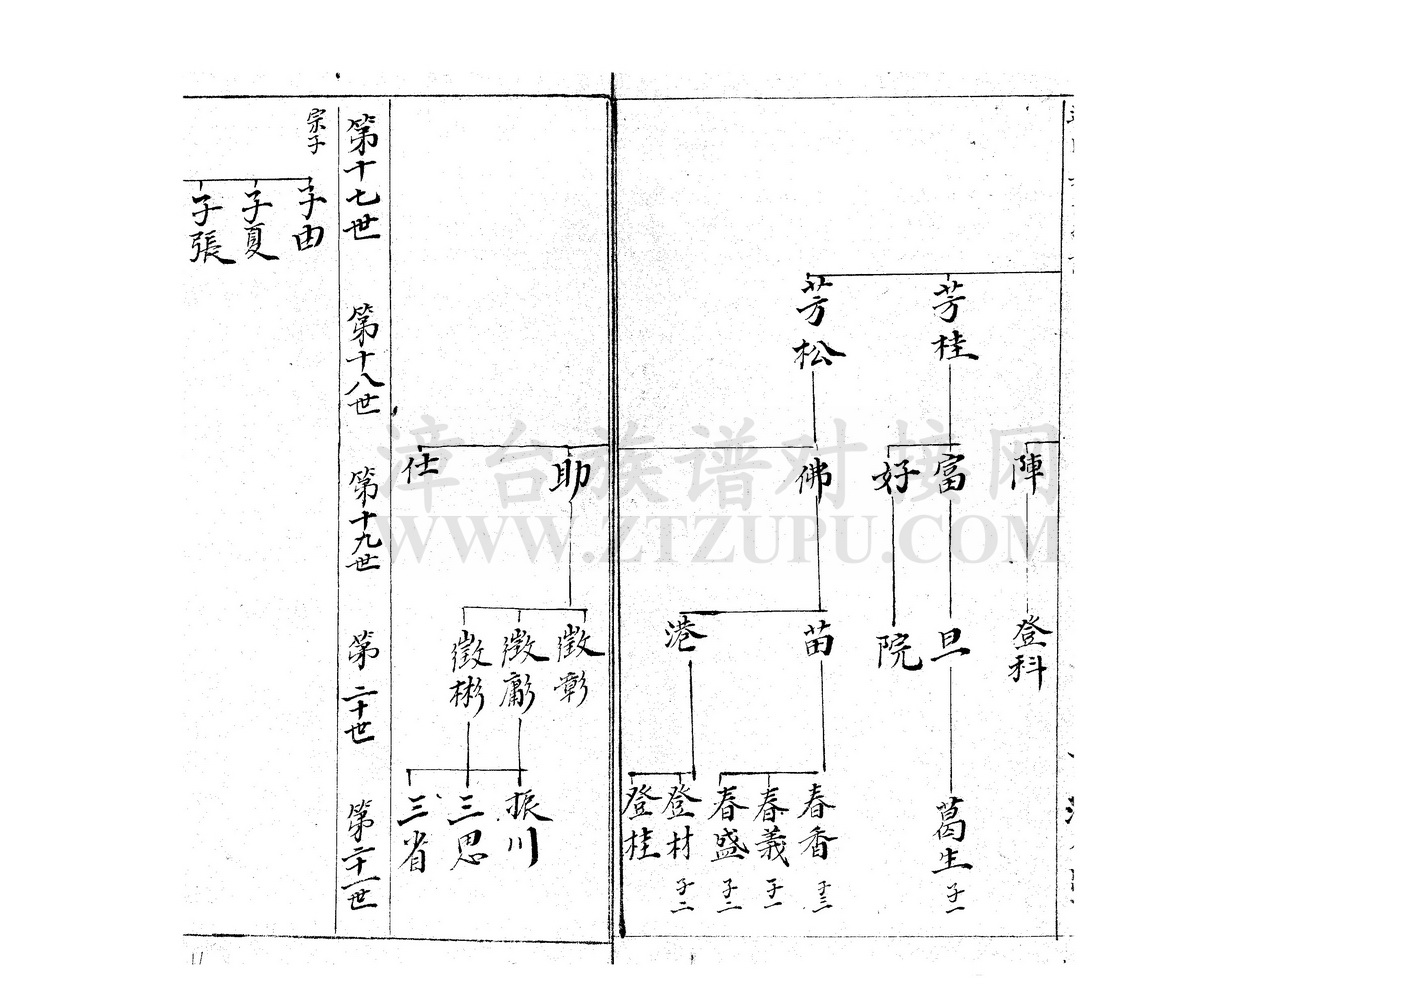 芳桂
芳松
陣
富
好
佛
登科
旦
院
苗
港
葛生
子一
春香
子三
春義
子一
春盛
子二
登材
子二
登桂
助
仕
徵彰
徵彬
振川
三思
三省
第十七世
第十八世
第十九世
第二十世
第二十一世
宗子
子由
子夏
子張
漳台族谱对接网
WWW.ZTZUPU.COM